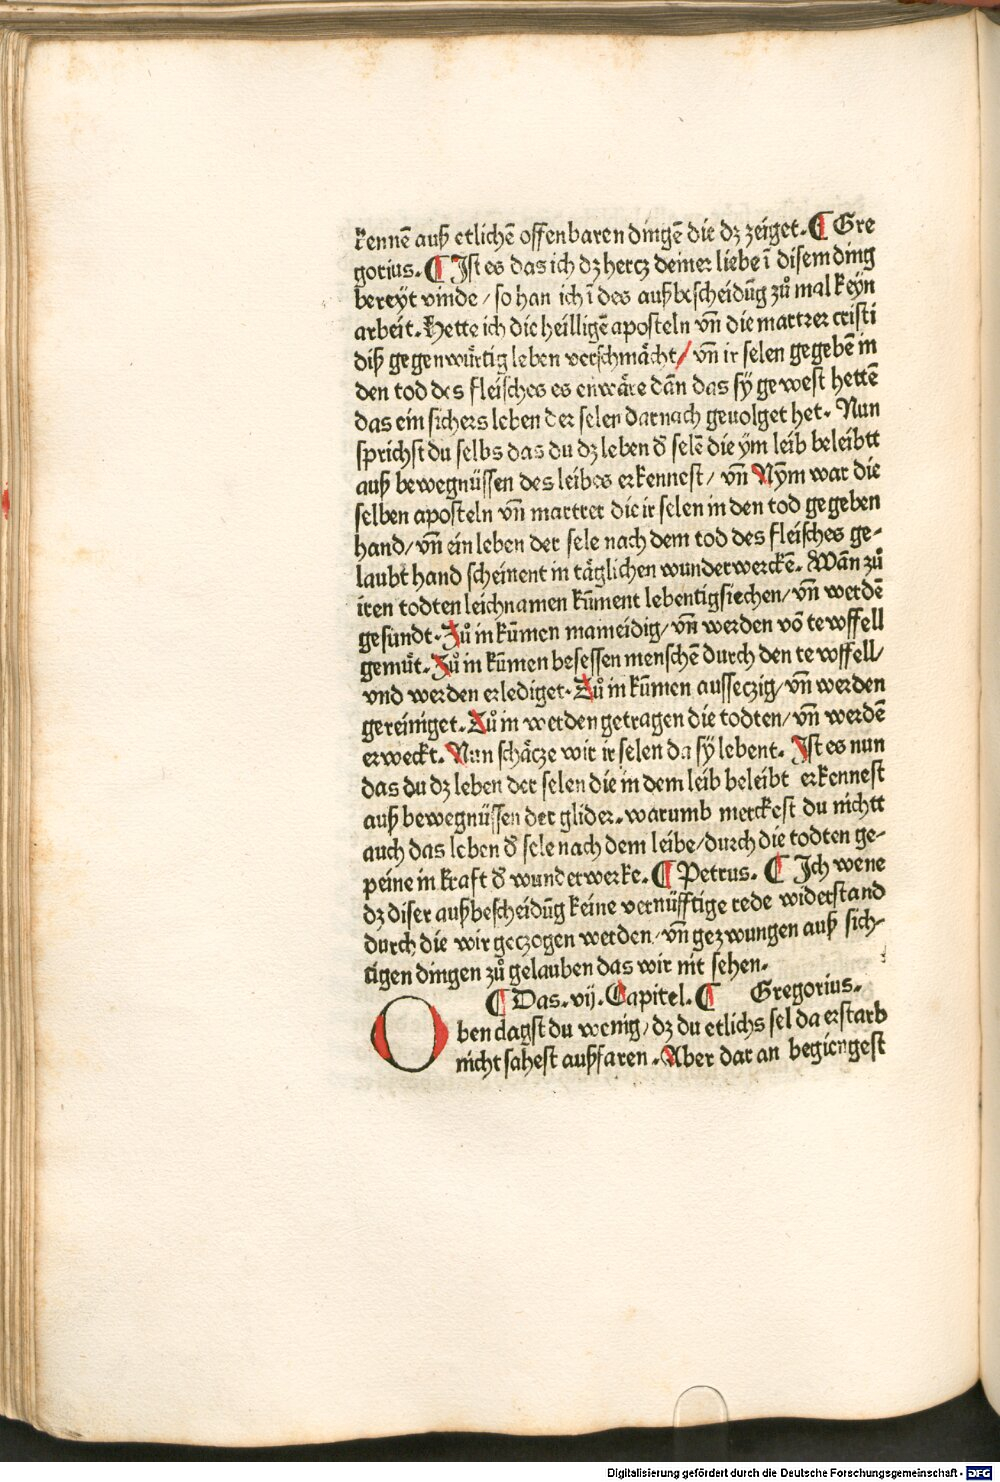 kennē auß etlichē offenbaren dingē die dz zeiget. ¶ Gre
gorius. ¶ Ist es das ich dz hercz deiner liebe ī disem ding
bereyt vinde / so han ich ī des außbescheidūg zů mal keyn
arbeit. Hette ich die heilligē aposteln vn̄ die martrer cristi
diß gegenwürtig leben verschmächt / vn̄ ir selen gegebē in
den tod des fleisches es enwäre dān das sÿ gewest hettē
das ein sichers leben der selen darnach geuolget het. Nun
sprichst du selbs das du dz leben d̄ selē die ym leib beleibtt
auß bewegnüssen des leibes erkennest / vn̄ Nym̄ war die
selben aposteln vn̄ martrer die ir selen in den tod gegeben
hand / vn̄ ein leben der sele nach dem tod des fleisches ge-
laubt hand scheinent in täglichen wunderwerckē. Wān zů
iren todten leichnamen kūment lebentigsiechen / vn̄ werdē
gesundt. Zů in kūmen maineidig / vn̄ werden vō tewffell
gemüt. Zů in kūmen besessen menschē durch den tewffell /
vnd werden erlediget. Zů in kūmen ausseczig / vn̄ werden
gereiniget. Zů in werden getragen die todten / vn̄ werdē
erweckt. Nun schäcze wir ir selen da sÿ lebent. Ist es nun
das du dz leben der selen die in dem leib beleibt erkennest
auß bewegnüssen der glider. warumb merckest du nichtt
auch das leben d̄ sele nach dem leibe / durch die todten ge-
peine in kraft d̄ wunderwerke. ¶ Petrus. ¶ Ich wene
dz diser außbescheidūg keine vernüfftige rede widerstand
durch die wir geczogen werden / vn̄ gezwungen auß sich-
tigen dingen zů gelauben das wir nit sehen.
¶ Das. vij. Capitel. ¶ Gregorius.
Oben dagst du wenig / dz du etlichs sel da erstarb
nicht sahest außfaren. Aber dar an begiengest
Digitalisierung gefördert durch die Deutsche Forschungsgemeinschaft - DFG